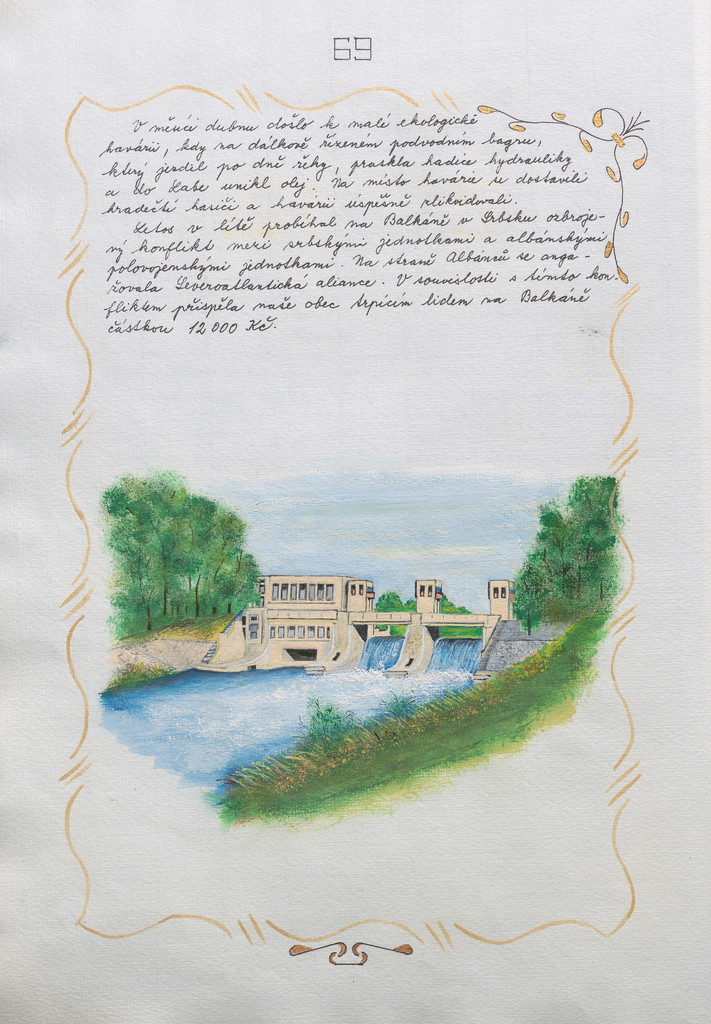 69
V měsíci dubnu došlo k malé ekologické
havárii, kdy na dálkově řízeném podvodním bagru,
který jezdil po dně řeky, praskla hadice hydrauliky
a do Labe unikl olej. Na místo havárie se dostavili
hradečtí hasiči a havárii úspěšně zlikvidovali.
Letos v létě probíhal na Balkáně v Srbsku ozbroje-
ný konflikt mezi srbskými jednotkami a albánskými
polovojenskými jednotkami. Na straně Albánců se anga-
žovala Severoatlantická aliance. V souvislosti s tímto kon-
fliktem přispěla naše obec trpícím lidem na Balkáně
částkou 12 000 Kč.